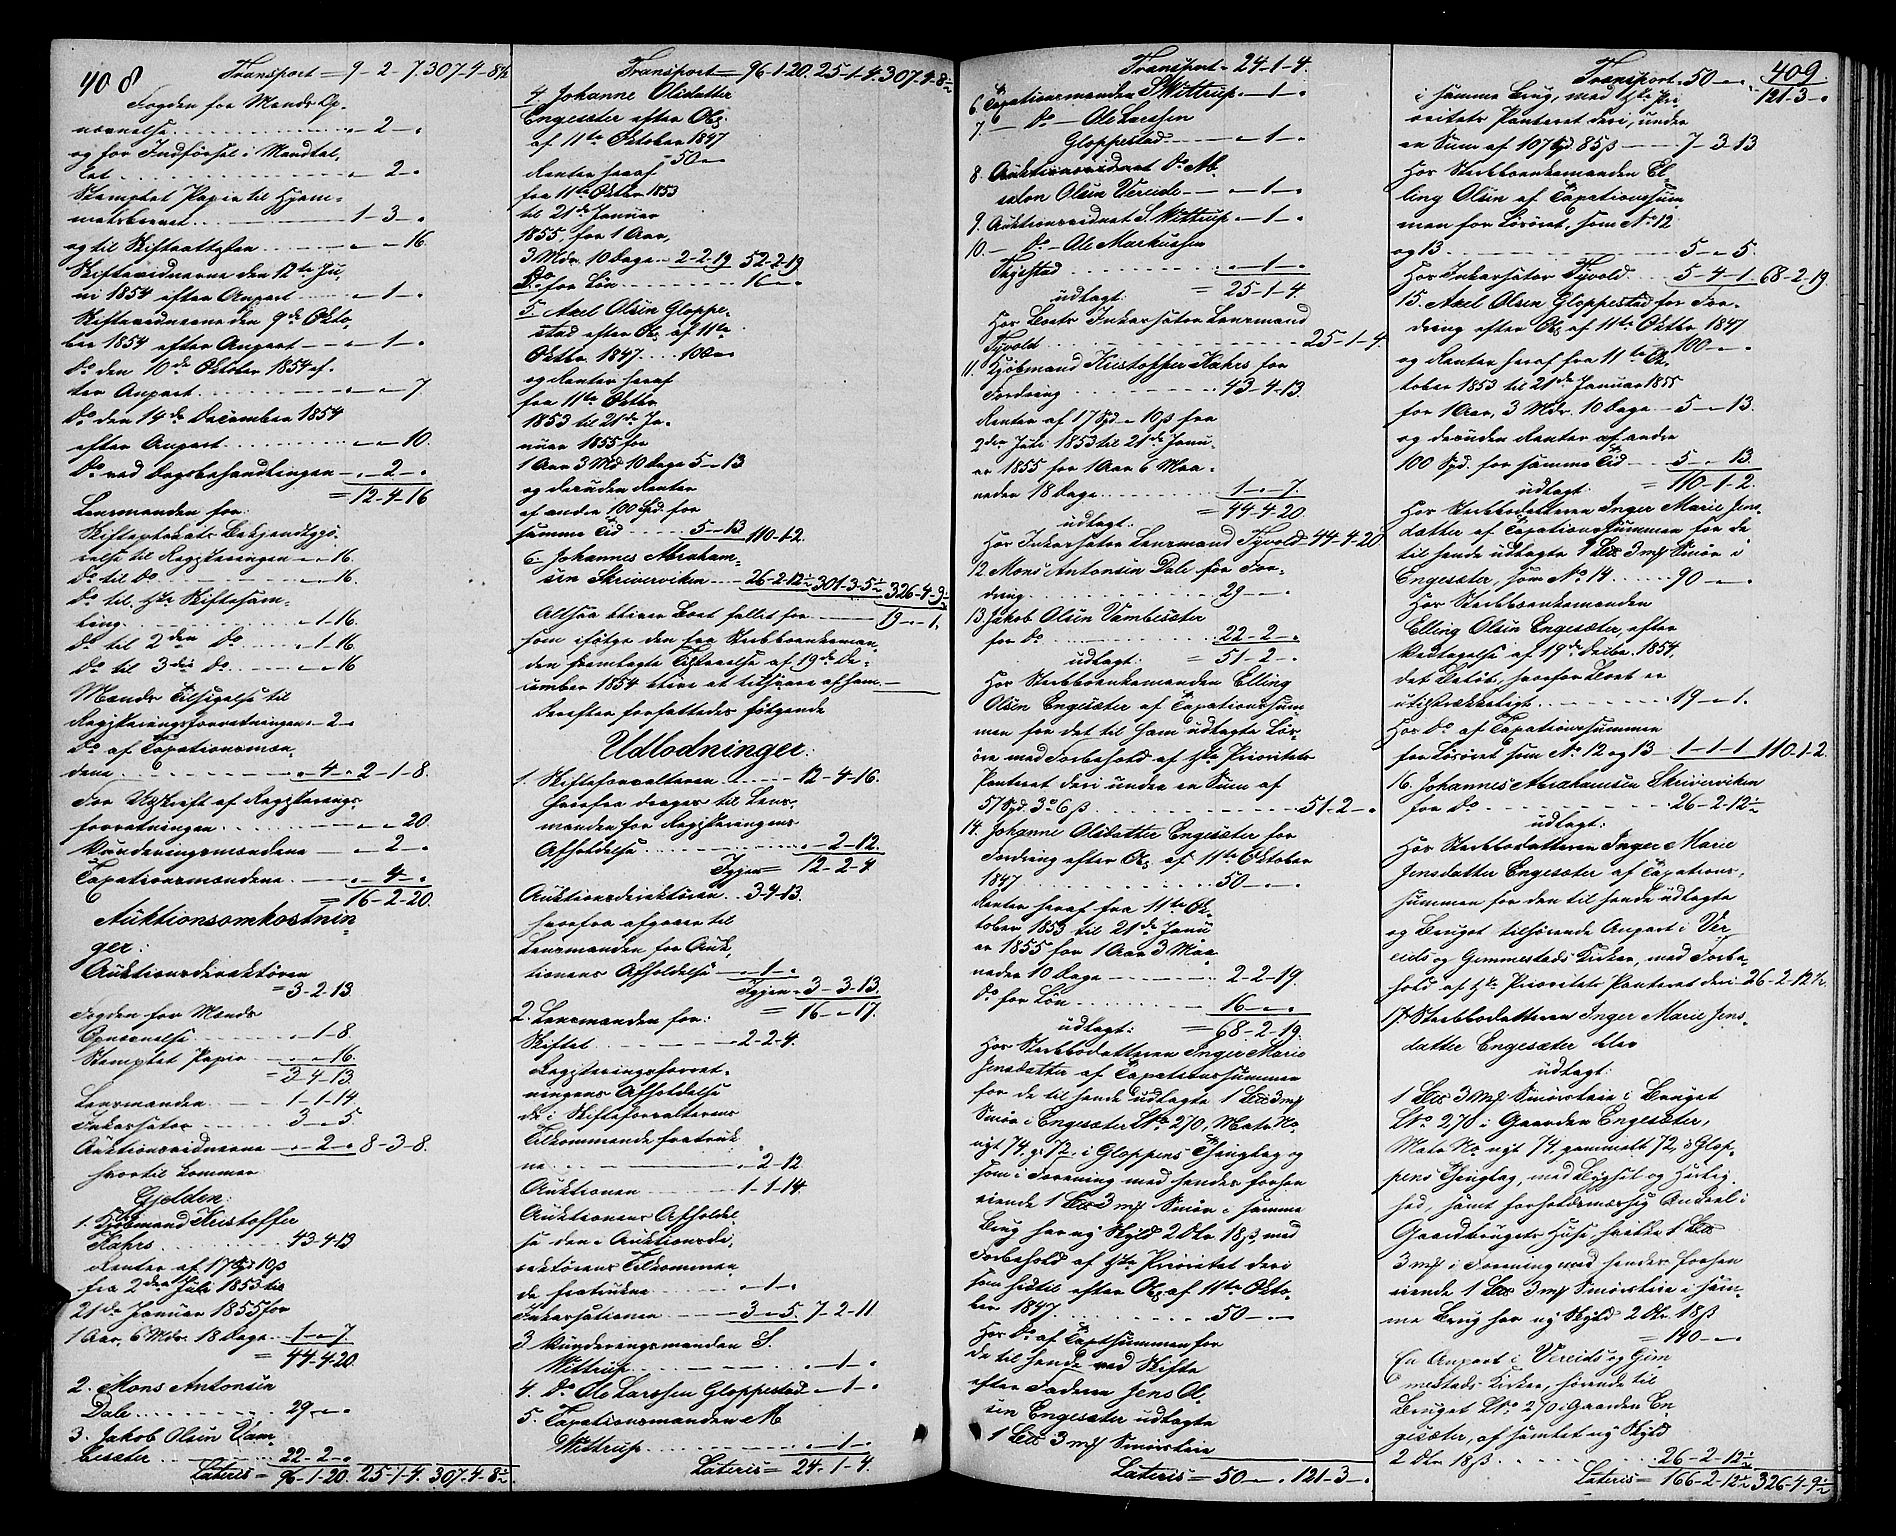 408
Transport = 9-2-7. 307-4-8½
Fogden for Mænds Op-
nævnelse - 2 -
og for Indførsel i Mandtal-
let - 2 -
Stemplet Papir til Hjem-
melsbrevet 1-3-
og til Skifteattesten - - 16
Skiftevidnerne den 12te Ju-
ni 1854 efter Anpart - 1 -
Skiftevidnerne den 9de Okto-
ber 1854 efter Anpart - 1 -
Do den 10de Oktober 1854 ef-
ter Anpart - - 7.
Do den 14de December 1854
efter Anpart - - 10.
Do ved Dagsbehandlingen - 2 -
= 12-4-16
Lensmanden for:
Skiftets Bekjendtgjø-
relse til Registreringen - - 16.
Do til Do - - 16.
Do til 1ste Skiftesam-
ling - 1-16.
Do til 2den Do - 1-16.
Do til 3die Do - - 16
Mænds Tilsigelse til
Registreringsforretningen - 2 -
Do af Taxationsmæn-
dene - 4 - 2-1-8.
For Udskrift af Registrerings-
forretningen - - 20
Vurderingsmændene - 2 -
Taxationsmændene - 4 -
= 16-2-20.
Auktionsomkostnin-
ger:
Auktionsdirektøren
= 3-2-13.
Fogden for Mænds
Opnævnelse - 1-8.
Stemplet Papir - - 16.
= 3-4-13.
Lensmanden 1-1-14.
Inkassator 3 - 5.
Auktionsvidnerne - 2 - 8-3-8.
hvortil kommer
Gjælden:
1. Kjøbmand Kristoffer
Kahrs 43-4-13
Renter af 17 Spd 10 ß
fra 2den Juli 1853 til
21de Januar 1855 for
1 Aar, 6 Mdr. 18 Dage 1 - 7
= 44-4-20.
2. Mons Antonsen
Dale 29 - -
3. Jakob Olsen Vam-
besæter 22-2-
Lateris = 96-1-20. 25-1-4. 307-4-8½
Transport = 96-1-20. 25-1-4. 307-4-8½
4. Johanne Olsdatter
Engesæter efter Obl.
af 11te Oktober 1847
50 -
Renter heraf
fra 11te Oktbr 1853
til 21de Januar
1855 for 1 Aar,
3 Mdr. 10 Dage 2-2-19 52-2-19
Do for Løn 16 - -
5. Axel Olsen Gloppe-
stad efter Obl. af 11te
Oktbr 1847 100 -
og Renter heraf
fra 11te Oktbr
1853 til 21de Ja-
nuar 1855 for
1 Aar 3 Md. 10 Dage 5 - 13
og desuden Renter
af andre 100 Spd. for
samme Tid 5 - 13 110-1-2.
6. Johannes Abraham-
sen Skriverviken 26-2-12½ 301-3-5½ 326-4-9½
Altsaa bliver Boet fallit for 19 - 1.
som ifølge den fra Sterbboenkeman-
den fremlagte Erklærelse af 19de De-
cember 1854 bliver at tilsvare af ham.
Derefter forfattedes følgende
Udlodninger:
1. Skifteforvalteren 12-4-16.
herefra drages til Lens-
manden for Registreringens
Afholdelse - 2-12.
Igjen = 12-2-4
Auktionsdirektøren 3-4-13.
herefra afgaaer til
Lensmanden for Auk-
tionens Afholdelse - 1 -
Igjen 3-3-13.
= 16 - 17.
2. Lensmanden for:
Skiftet 2-2-4.
Registreringsforret-
ningens Afholdelse
de i Skifteforvalterens
Tilkommende fratruk-
ne - 2-12
Auktionen 1-1-14.
Auktionens Afholdel-
se den i Auktionsdi-
rektørens Tilkommen-
de fratrukne - 1 -
Inkassationen 3 - 5. 7-2-11
3. Vurderingsmanden S.
Wittrup - 1 -
4. Do Ole Larssen Gloppestad - 1 -
5. Taxationsmanden M
Wittrup - 1 -
Lateris = 24-1-4.
Transport = 24-1-4.
6. Taxationsmanden S Wittrup - 1 -
7 - Do - Ole Larssen
Gloppestad - 1 -
8. Auktionsvidnet Do Ab-
salon Olsen Vereide - 1 -
9. Auktionsvidnet S. Wittrup - 1 -
10 - Do - Ole Markussen
- 1 -
= 25-1-4
udlagt:
Hos Boets Inkassator Lensmand
Tyvold 25-1-4
11. Kjøbmand Kristoffer Kahrs for
Fordring 43-4-13.
Renter af 17 Spd - 10 ß fra
2den Juli 1853 til 21de Janu-
ar 1855 for 1 Aar 6 Maa-
neder 18 Dage 1 - 7.
= 44-4-20
udlagt:
Hos Inkassator Lensmand Tyvold 44-4-20
12. Mons Antonsen Dale for For-
dring 29 - -
13. Jakob Olsen Vambesæter
for Do 22-2-
udlagt: = 51-2-
Hos Sterbboenkemanden Elling
Olsen Engesæter af Taxationssum-
men for det til ham udlagte Løs-
øre med Forbehold af 1ste Prioritets
Panteret deri under en Sum af
57 Spd. 3 o 6 ß 51-2-
14. Johanne Olsdatter Engesæter for
Fordring efter Obl. af 11te Oktober
1847 50 - -
Renter heraf fra 11te Ok-
tober 1853 til 21de Janu-
ar 1855 for 1 Aar 3 Maa-
neder 10 Dage 2-2-19.
Do for Løn 16 - -
udlagt: = 68-2-19.
Hos Sterbbodatteren Inger Marie
Jensdatter af Taxationssummen
for de til hende udlagte 1 Løb 3 mk
Smør i Engesæter L.No 270, Matr. No
nyt 74, g. 72 i Gloppens Thinglag og
som i Forening med hendes forhen
eiende 1 Løb 3 mk Smør i samme
Brug har ny Skyld 2 Dlr 18 ß, med
Forbehold af 1ste Prioritet deri
som hidtil efter Obl. af 11te Okto-
ber 1847 50 - -
Hos Do af Taxtsummen for
de til hende ved Skifte
efter Faderen Jens Ol-
sen Engesæter udlagte
1 Løb 3 mk Smørsleie
Lateris = 50 - - 121-3-
409.
Transport 50 - - 121-3-
i samme Brug, med 1ste Pri-
oritets Panteret deri, under
en Sum af 107 Spd 85 ß 7-3-13
Hos Sterbboenkemanden El-
ling Olsen af Taxationssum-
men for Løsøret, som No 12
og 13 5 - 5.
Hos Inkassator Tyvold 5-4-1 68-2-19.
15. Axel Olsen Gloppestad for For-
dring efter Obl. af 11te Oktbr 1847
100 - -
og Renter heraf fra 11te Ok-
tober 1853 til 21de Januar 1855
for 1 Aar, 3 Mdr. 10 Dage 5 - 13.
og desuden Renter af andre
100 Spd. for samme Tid 5 - 13.
udlagt: = 110-1-2.
Hos Sterbbodatteren Inger Marie Jens-
datter af Taxationssummen for de
til hende udlagte 1 Løb 3 mk Smør i
Engesæter, som No 14 90 - -
Hos Sterbboenkemanden
Elling Olsen Engesæter, efter
Vedtagelse af 19de Decbr. 1854,
det Beløb, hvorfor Boet er
utilstrækkeligt 19 - 1.
Hos Do af Taxationssummen
for Løsøret som No 12 og 13 1-1-1 110-1-2.
16. Johannes Abrahamsen Skriverviken
for Do 26-2-12½
udlagt:
Hos Sterbbodatteren Inger Marie
Jensdatter Engesæter af Taxations-
summen for den til hende udlagte
og Bruget tilhørende Anpart i Ver-
eids og Gimmestads Kirker, med Forbe-
hold af 1ste Prioritets Panteret deri 26-2-12½
17. Sterbbodatteren Inger Marie Jens-
datter Engesæter blev
udlagt:
1 Løb 3 mk Smørsleie i Bruget
L.No 270 i Gaarden Engesæter,
Matr. No nyt 74, gammelt 72, i Glop-
pens Thinglag, med Bygsel og Herlig-
hed, samt forholdsmæssig Andeel i
Gaardbrugets Huse, hvilke 1 Løb
3 mk i Forening med hendes forhen
eiende 1 Løb 3 mk Smørsleie i sam-
me Brug har ny Skyld 2 Dlr. 18 ß
= 140 - -
En Anpart i Vereids og Gim-
mestads Kirker, hørende til
Bruget L.No 270 i Gaarden En-
gesæter, af samlet ny Skyld
2 Dlr 18 ß 26-2-12½
Lateris = 166-2-12½ 326-4-9½